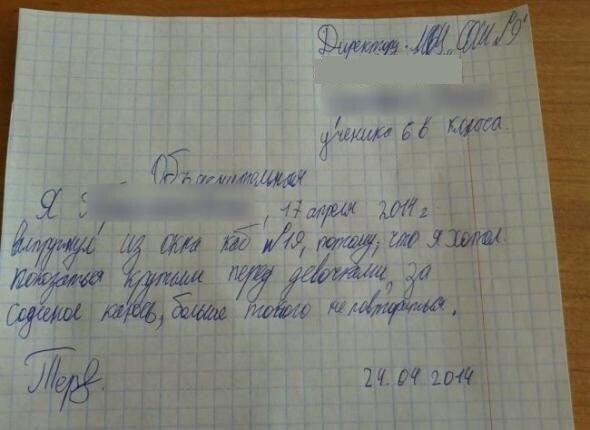 Директору МОУ "СОШ №9"
ученика 6 В класса.
Объяснительная
Я , 17 апреля 2014 г
выпрыгнул из окна каб №19, потому, что я хотел
показаться крутым перед девочками, за
содеяное каюсь, больше такого не повториться.
24.04 2014